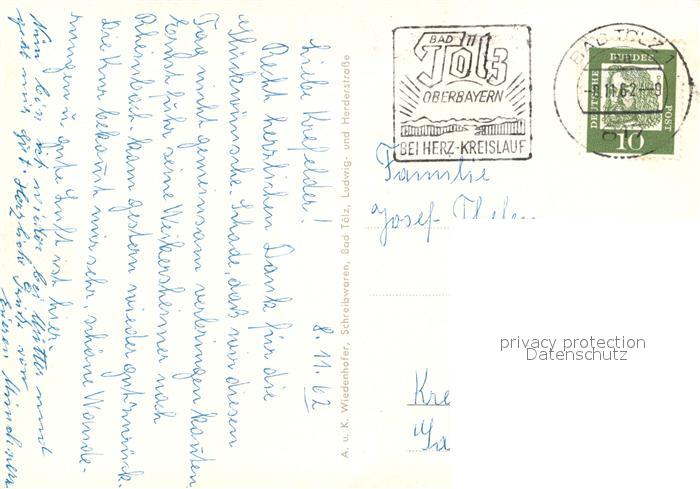 8. 11. 62
Liebe Krefelder!
Recht herzlichen Dank für die
Glückwünsche. Schade, daß wir diesen
Tag nicht gemeinsam verbringen konnten.
Horst fuhr seine Weikersheimer nach
Rheinbach, kam gestern wieder gut zurück.
Die Kur bekommt mir sehr, schöne Wande-
rungen u. gute Luft ist hier.
Nun bin ich wieder bei Mutter und
geht mir gut. Herzliche Grüße von
Eueren Münchnern
A. u. K. Wiedenhofer, Schreibwaren, Bad Tölz, Ludwig- und Herderstraße
BAD
Tölz
OBERBAYERN
BEI HERZ-KREISLAUF
BAD TÖLZ 1
-8.11.62--9
817
DEUTSCHE
BUNDES
POST
10
Familie
Josef
privacy protection
Datenschutz
Kre